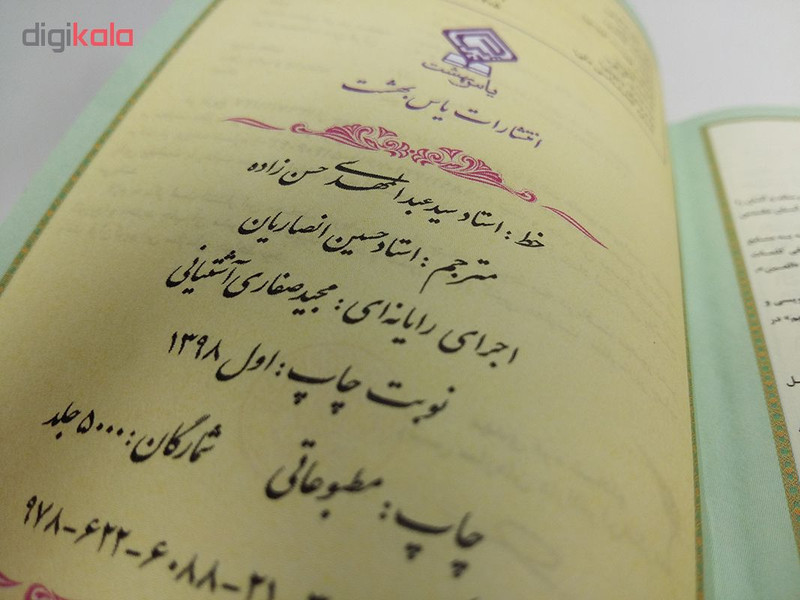 digikala
یاس بهشت
انتشارات یاس بهشت
خط: استاد سید عبدالمهدی حسن زاده
مترجم: استاد حسین انصاریان
اجرای رایانه‌ای: مجید صفاری آشتیانی
نوبت چاپ: اول ۱۳۹۸
چاپ: مطبوعاتی شمارگان: ۵۰۰۰ جلد
۹۷۸-۶۲۲-۶۰۸۸-۲۱